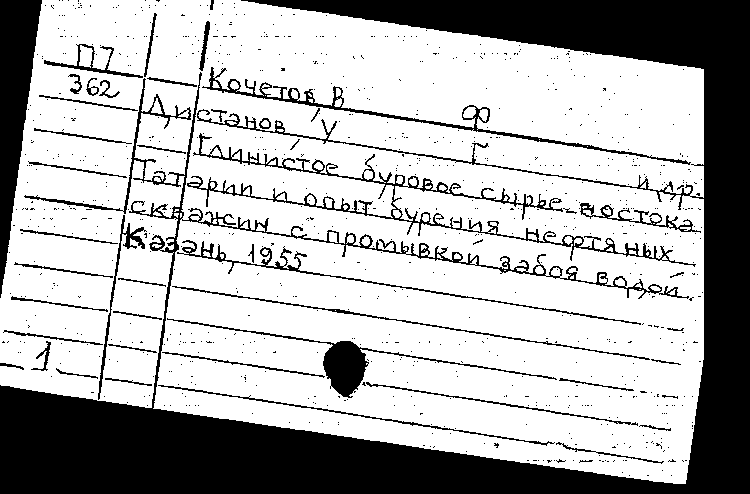 П7
362
Кочетов, В Ф
Дистанов, У Г и др.
Глинистое буровое сырье востока
Татарии и опыт бурения нефтяных
скважин с промывкой забоя водой.
Казань, 1955
1